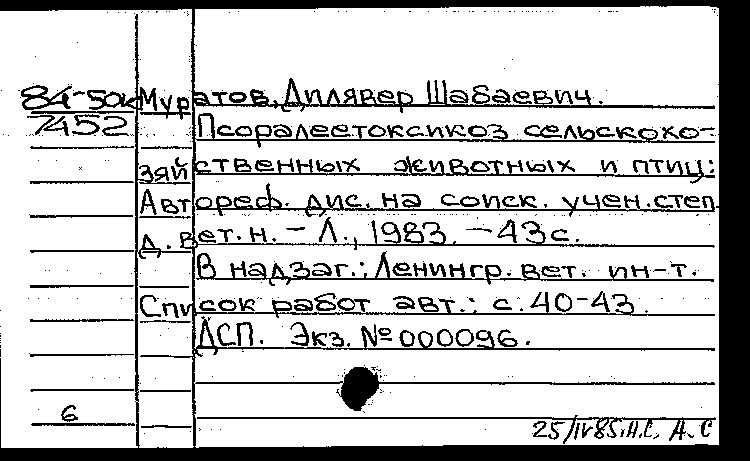 84-50к Муратов, Дилявер Шабаевич.
7452 Псоралеетоксикоз сельскохо-
зяйственных животных и птиц:
Автореф. дис. на соиск. учен. степ.
д. вет. н. – Л., 1983. – 43 с.
В надзаг.: Ленингр. вет. ин-т.
Список работ авт.: с. 40-43.
ДСП. Экз. № 000096.
6
25/IV85.